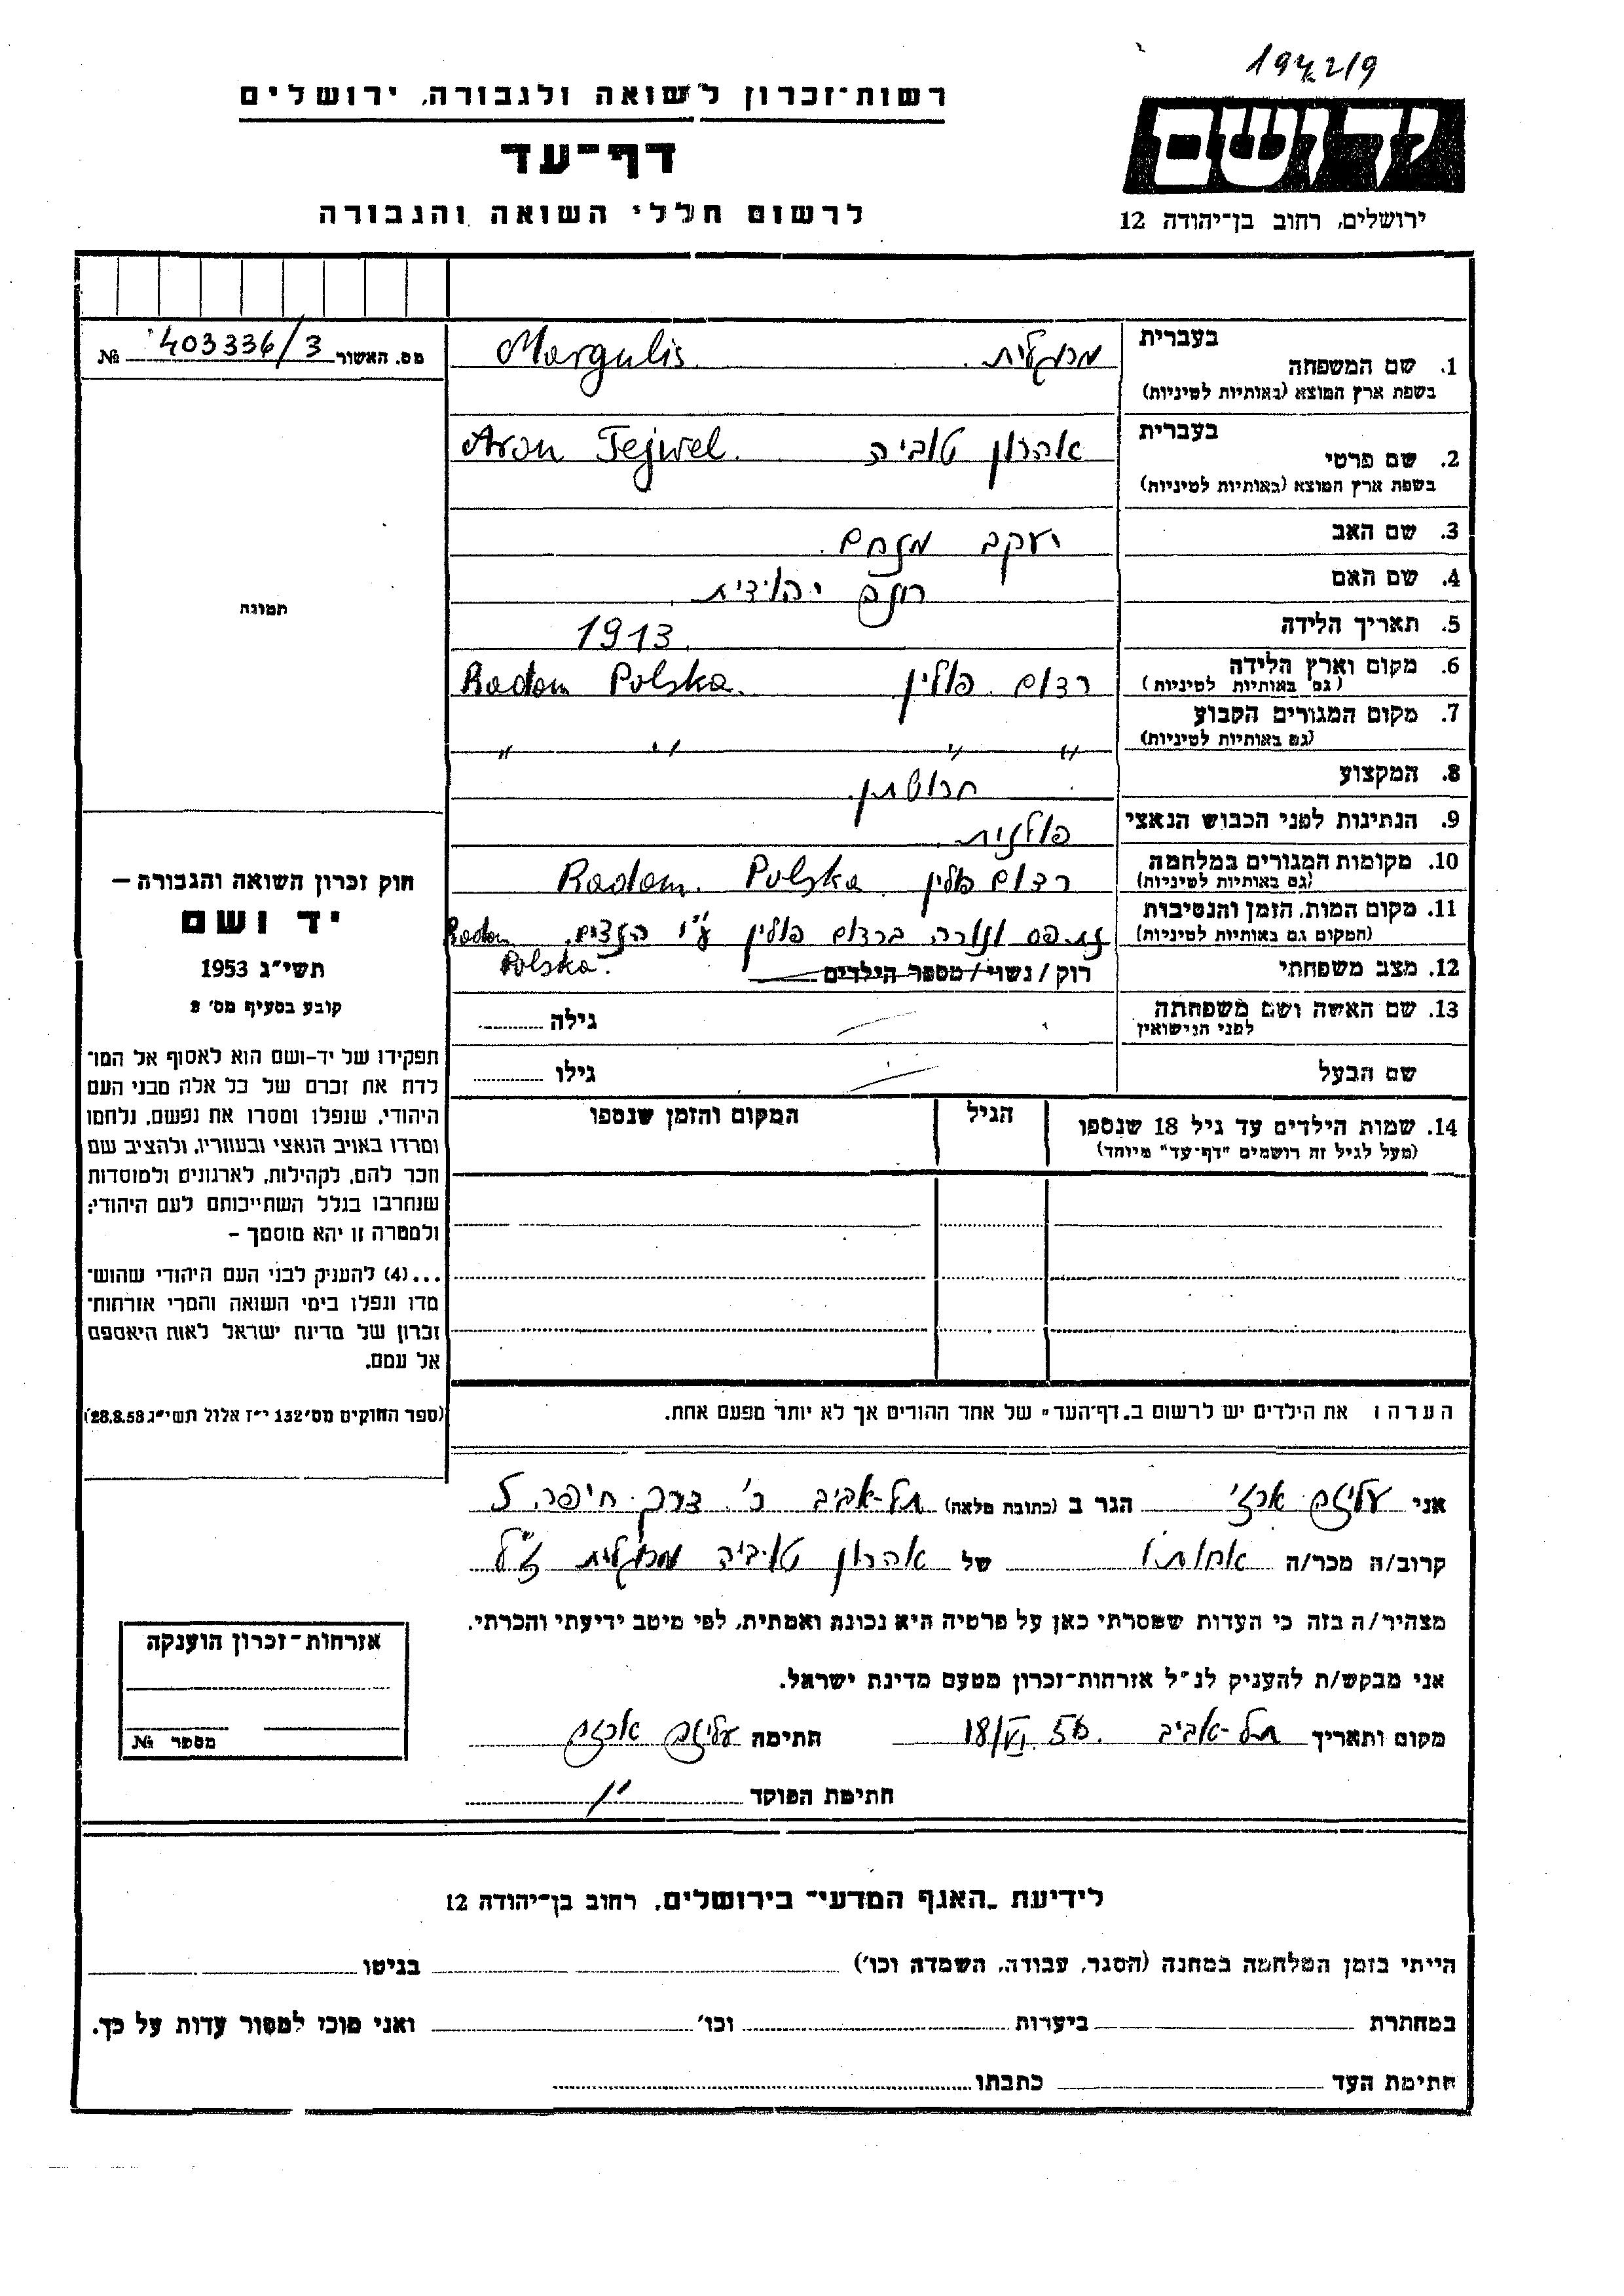 194219
רשות־זכרון לשואה ולגבורה, ירושלים
דף־עד
לרשום חללי השואה והגבורה
ידושם
ירושלים, רחוב בן־יהודה 12
מס. האשור 403336/3 №
תמונה
חוק זכרון השואה והגבורה –
יד ושם
תשי״ג 1953
קובע בסעיף מס׳ 2
תפקידו של יד-ושם הוא לאסוף אל המו־
לדת את זכרם של כל אלה מבני העם
היהודי, שנפלו ומסרו את נפשם, נלחמו
ומרדו באויב הנאצי ובעוזריו, ולהציב שם
וזכר להם, לקהילות, לארגונים ולמוסדות
שנחרבו בגלל השתייכותם לעם היהודי;
ולמטרה זו יהא מוסמך –
...(4) להעניק לבני העם היהודי שהוש־
מדו ונפלו בימי השואה והמרי אזרחות־
זכרון של מדינת ישראל לאות היאספם
אל עמם.
(ספר החוקים מס׳ 132 י״ז אלול תשי״ג 28.8.53)
בעברית
1. שם המשפחה מרגלית Margulis
בשפת ארץ המוצא (באותיות לטיניות)
בעברית
2. שם פרטי אהרון טוביה Aron Tejwel
בשפת ארץ המוצא (באותיות לטיניות)
3. שם האב יעקב מנחם
4. שם האם יהודית
5. תאריך הלידה 1913
6. מקום וארץ הלידה רדום פולין Radom Polska
(גם באותיות לטיניות)
7. מקום המגורים הקבוע " " " "
(גם באותיות לטיניות)
8. המקצוע חרושתן
9. הנתינות לפני הכבוש הנאצי פולנית
10. מקומות המגורים במלחמה רדום פולין Radom Polska
(גם באותיות לטיניות)
11. מקום המות, הזמן והנסיבות נתפס ונורה ברדום פולין ע״י הנאצים. Radom
(המקום גם באותיות לטיניות) Polska.
12. מצב משפחתי רוק / נשוי / מספר הילדים
13. שם האשה ושם משפחתה גילה
לפני הנישואין
שם הבעל גילו
14. שמות הילדים עד גיל 18 שנספו הגיל המקום והזמן שנספו
(מעל לגיל זה רושמים "דף־עד" מיוחד)
הערה: את הילדים יש לרשום ב„דף־העד" של אחד ההורים אך לא יותר מפעם אחת.
אני עליזה ארזי הגר ב (כתובת מלאה) תל-אביב דרך חיפה 5
קרוב/ה מכר/ה אחותו של אהרון טוביה מרגלית ז״ל
מצהיר/ה בזה כי העדות שמסרתי כאן על פרטיה היא נכונה ואמתית, לפי מיטב ידיעתי והכרתי.
אני מבקש/ת להעניק לנ״ל אזרחות־זכרון מטעם מדינת ישראל.
מקום ותאריך תל-אביב 18/VI.56 חתימה עליזה ארזי
חתימת הפוקד
אזרחות־זכרון הוענקה
מספר №
לידיעת „האגף המדעי" בירושלים, רחוב בן־יהודה 12
הייתי בזמן המלחמה במחנה (הסגר, עבודה, השמדה וכו׳) בגיטו
במחתרת ביערות וכו׳ ואני מוכן למסור עדות על כך.
חתימת העד כתבתו